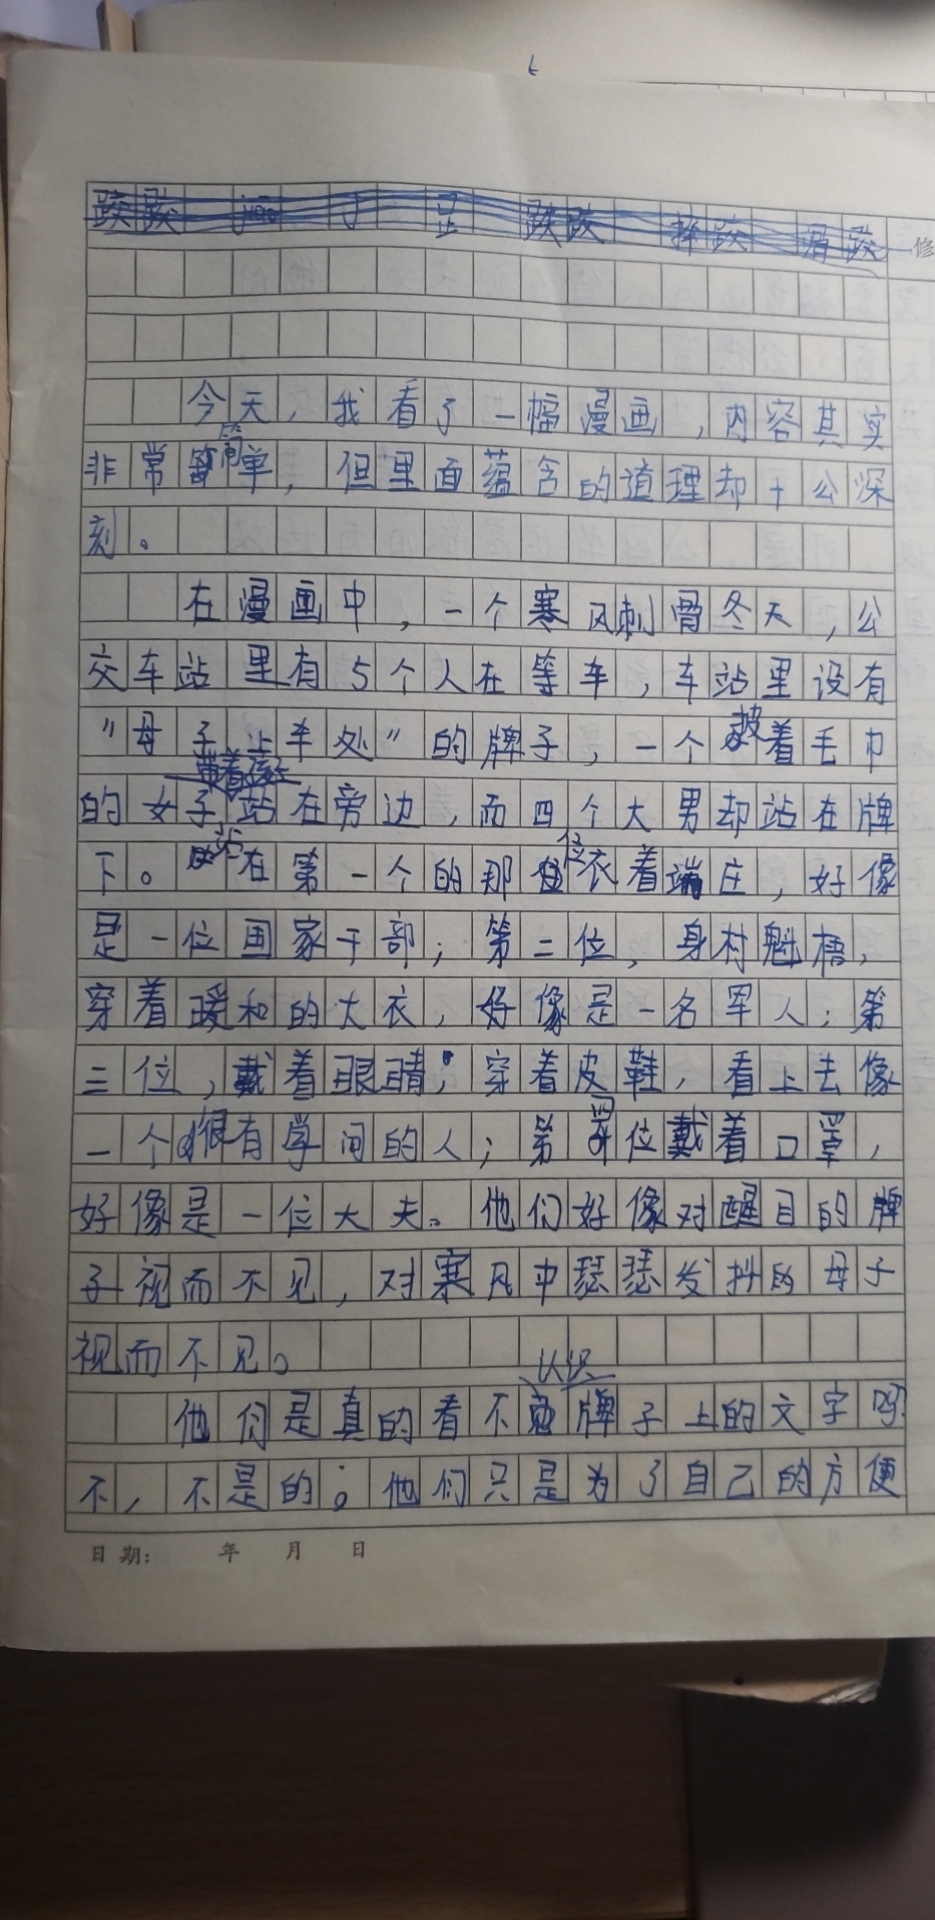 今天，我看了一幅漫画，内容其实
非常简单，但里面蕴含的道理却十公深
刻。
在漫画中，一个寒风刺骨冬天，公
交车站里有5个人在等车，车站里设有
“母子上车处”的牌子，一个披着毛巾
带着孩子
的女子站在旁边，而四个大男却站在牌
下。站在第一个的那位衣着端庄，好像
是一位国家干部；第二位，身村魁梧，
穿着暖和的大衣，好像是一名军人；第
三位，戴着眼睛，穿着皮鞋，看上去像
一个很有学问的人；第四位戴着口罩，
好像是一位大夫。他们好像对醒目的牌
子视而不见，对寒风中瑟瑟发抖的母子
视而不见。
认识
他们是真的看不牌子上的文字吗
不，不是的。他们只是为了自己的方便
日期： 年 月 日
修